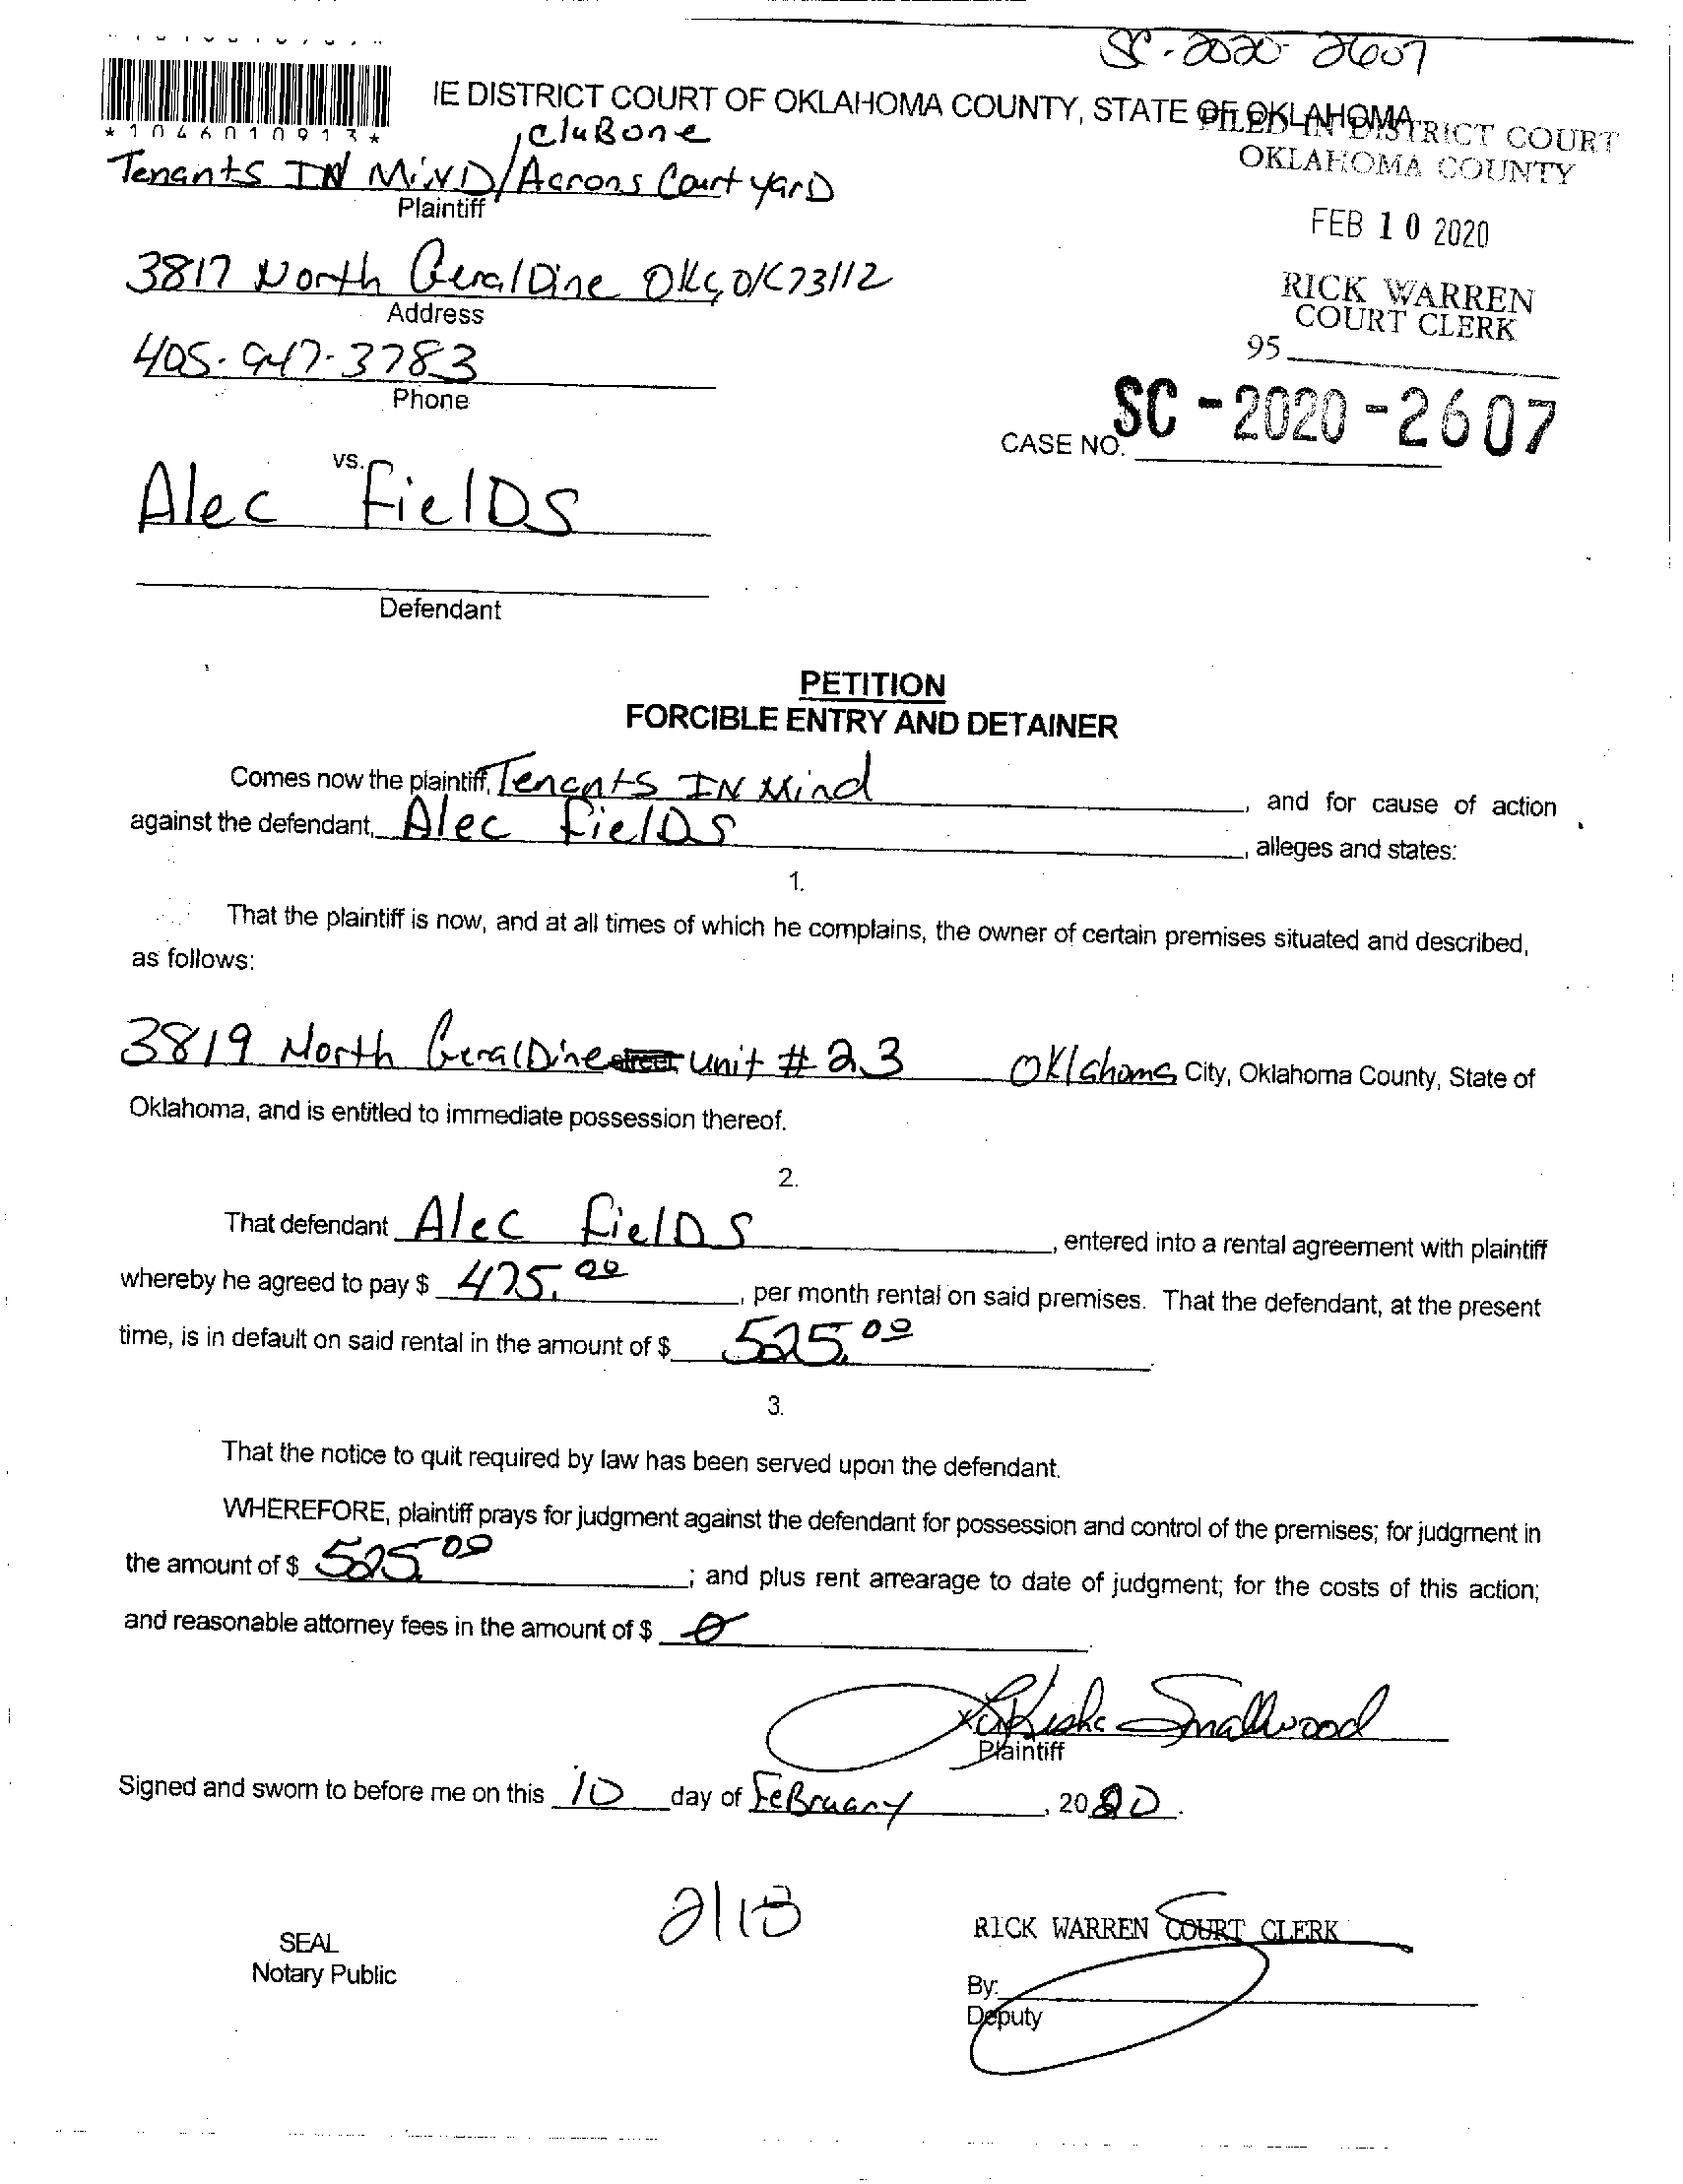 SC-2020-2607
*1046010913*
IE DISTRICT COURT OF OKLAHOMA COUNTY, STATE OF OKLAHOMA
FILED IN DISTRICT COURT
OKLAHOMA COUNTY
FEB 10 2020
RICK WARREN
COURT CLERK
95
CASE NO. SC-2020-2607
, CluBone
Tenants IN MiND/Acrons CourtyarD
Plaintiff
3817 North GeralDine OKC, OK 73112
Address
405-947-3783
Phone
vs.
Alec FielDS
Defendant
PETITION
FORCIBLE ENTRY AND DETAINER
Comes now the plaintiff, Tenants IN Mind, and for cause of action
against the defendant, Alec FielDS, alleges and states:
1.
That the plaintiff is now, and at all times of which he complains, the owner of certain premises situated and described,
as follows:
3819 North GeralDine street unit # 23 Oklahoma City, Oklahoma County, State of
Oklahoma, and is entitled to immediate possession thereof.
2.
That defendant Alec FielDS, entered into a rental agreement with plaintiff
whereby he agreed to pay $ 475.00, per month rental on said premises. That the defendant, at the present
time, is in default on said rental in the amount of $ 525.00
3.
That the notice to quit required by law has been served upon the defendant.
WHEREFORE, plaintiff prays for judgment against the defendant for possession and control of the premises; for judgment in
the amount of $ 525.00; and plus rent arrearage to date of judgment; for the costs of this action;
and reasonable attorney fees in the amount of $ 0
Smallwood
Plaintiff
Signed and sworn to before me on this 10 day of FeBruary, 2020.
2/18
SEAL
Notary Public
RICK WARREN COURT CLERK
By:
Deputy